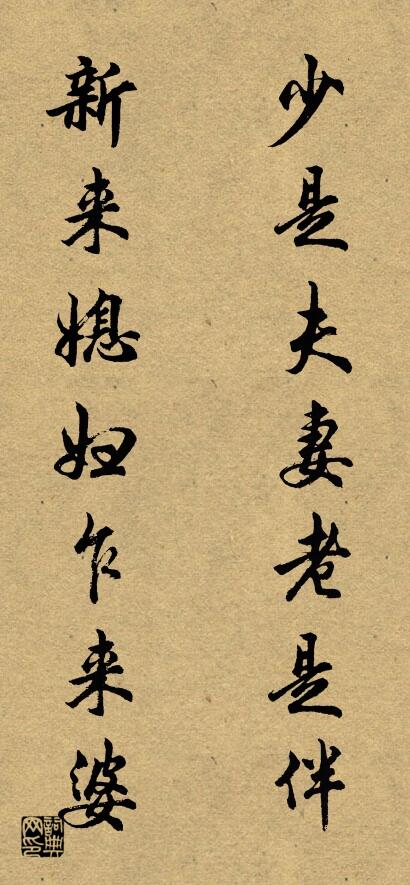 少是夫妻老是伴
新来媳妇乍来婆
词典网印